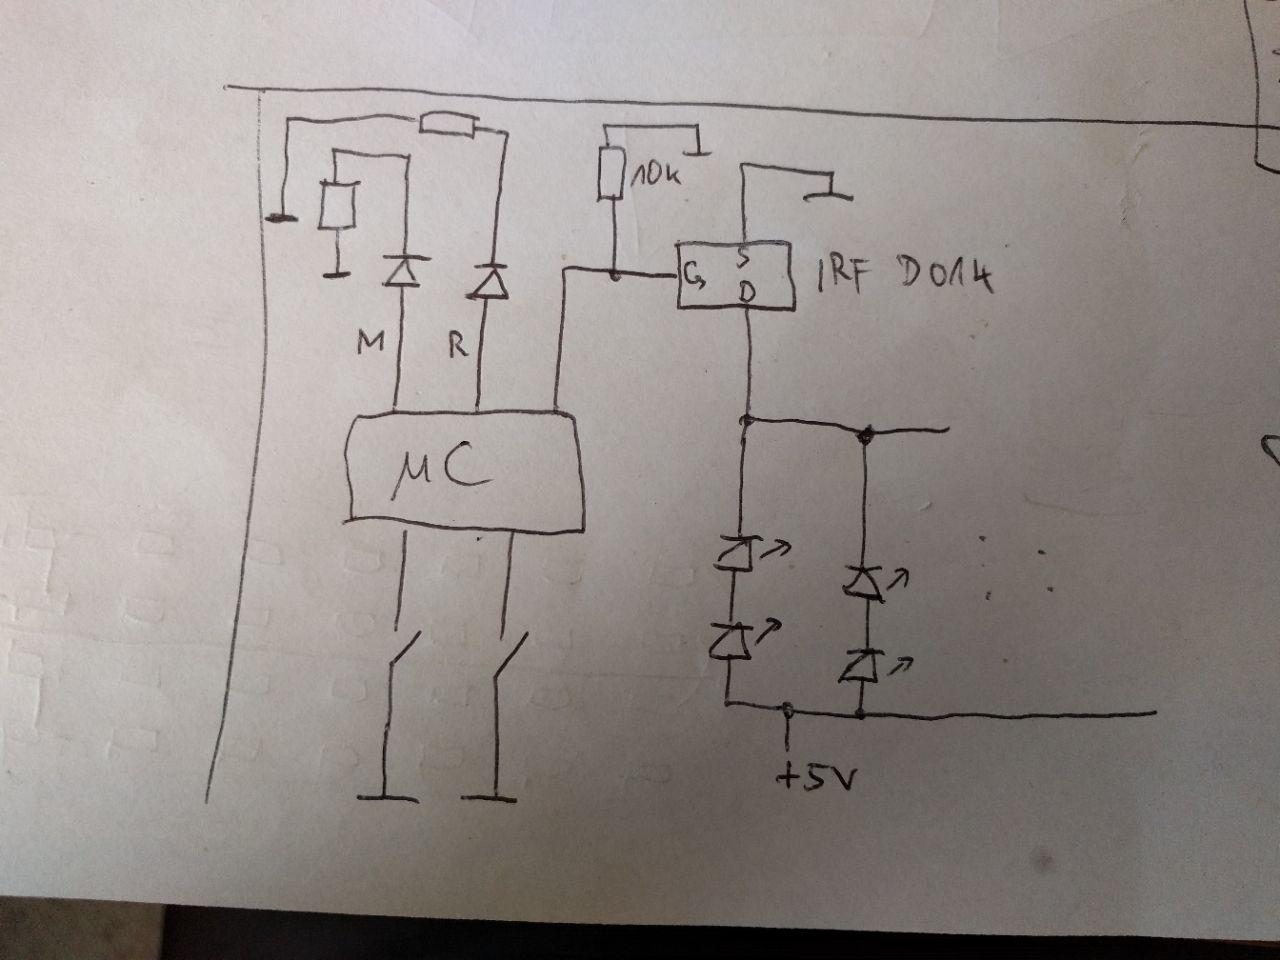 10k
G
S
D
IRF D014
M
R
µC
+5V